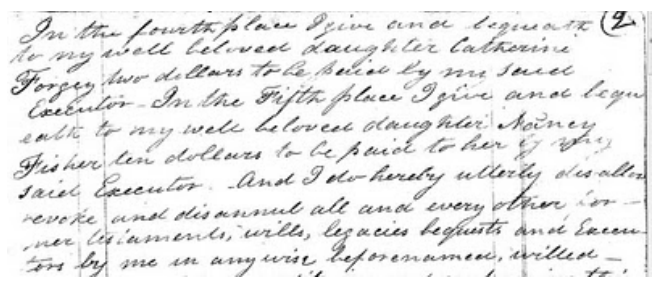 In the fourth place I give and bequeath (2
to my well beloved daughter Catherine
Forgey two dollars to be paid by my said
Executor - In the Fifth place I give and bequ
eath to my well beloved daughter Nancy
Fisher ten dollars to be paid to her by my
said Executor. And I do hereby utterly disallow
revoke and disannul all and every other for -
mer testaments, wills, legacies bequests and Execu-
tors by me in any wise beforenamed, willed -